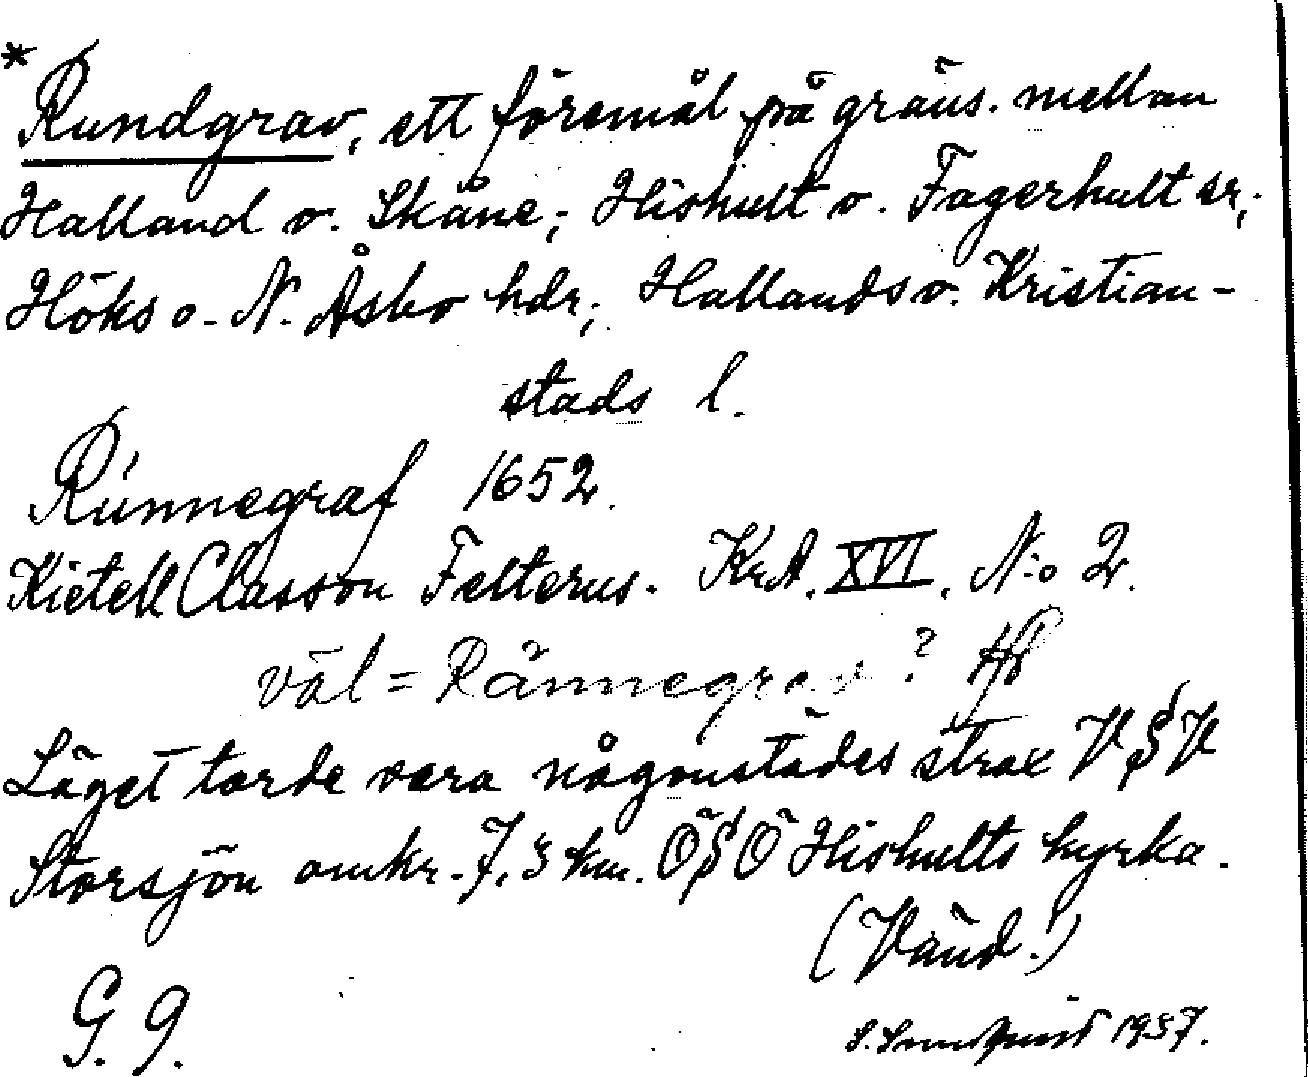 * Rundgrav, ett föremål på gräns. mellan
Halland o. Skåne; Hishult o. Fagerhult sr,;
Höks o. N. Åsbo hdr; Hallands o. Kristian-
stads l.
Rúnnegraf 1652.
Kietell Classon Felterus. KrA. XVI. N:o 2.
väl = Rännegrav?
Läget torde vara någonstädes strax V§V
Storsjön omkr. 7,3 km. Ö§Ö Hishults kyrka.
(Vänd!)
G. 9.
1937.